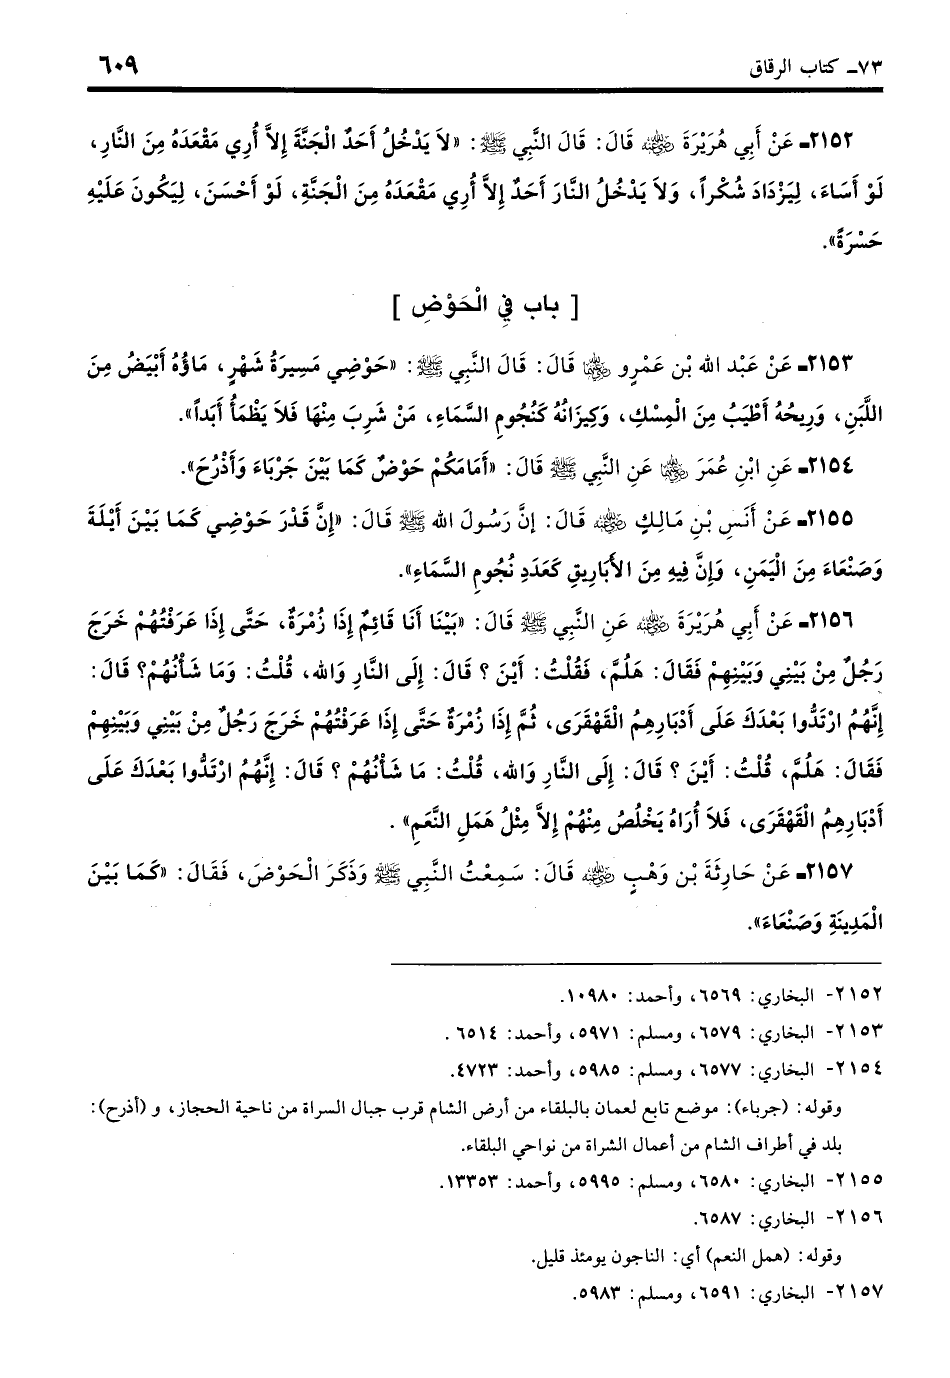 ٧٣ـ كتاب الرقاق ٦٠٩
٢١٥٢ـ عَنْ أَبِي هُرَيْرَةَ رضي الله عنه قَالَ: قَالَ النَّبِي ﷺ: «لاَ يَدْخُلُ أَحَدٌ الْجَنَّةَ إِلاَّ أُرِي مَقْعَدَهُ مِنَ النَّارِ،
لَوْ أَسَاءَ، لِيَزْدَادَ شُكْراً، وَلاَ يَدْخُلُ النَّارَ أَحَدٌ إِلاَّ أُرِي مَقْعَدَهُ مِنَ الْجَنَّةِ، لَوْ أَحْسَنَ، لِيَكُونَ عَلَيْهِ
حَسْرَةً».
[ باب فِي الْحَوْضِ ]
٢١٥٣ـ عَنْ عَبْد الله بْنِ عَمْرٍو رضي الله عنهما قَالَ: قَالَ النَّبِي ﷺ: «حَوْضِي مَسِيرَةُ شَهْرٍ، مَاؤُهُ أَبْيَضُ مِنَ
اللَّبَنِ، وَرِيحُهُ أَطْيَبُ مِنَ الْمِسْكِ، وَكِيزَانُهُ كَنُجُومِ السَّمَاءِ، مَنْ شَرِبَ مِنْهَا فَلاَ يَظْمَأُ أَبَداً».
٢١٥٤ـ عَنِ ابْنِ عُمَرَ رضي الله عنهما عَنِ النَّبِي ﷺ قَالَ: «أَمَامَكُمْ حَوْضٌ كَمَا بَيْنَ جَرْبَاءَ وَأَذْرُحَ».
٢١٥٥ـ عَنْ أَنَسِ بْنِ مَالِكٍ رضي الله عنه قَالَ: إنَّ رَسُولَ الله ﷺ قَالَ: «إِنَّ قَدْرَ حَوْضِي كَمَا بَيْنَ أَيْلَةَ
وَصَنْعَاءَ مِنَ الْيَمَنِ، وَإِنَّ فِيهِ مِنَ الأَبَارِيقِ كَعَدَدِ نُجُومِ السَّمَاءِ».
٢١٥٦ـ عَنْ أَبِي هُرَيْرَةَ رضي الله عنه عَنِ النَّبِي ﷺ قَالَ: «بَيْنَا أَنَا قَائِمٌ إِذَا زُمْرَةٌ، حَتَّى إِذَا عَرَفْتُهُمْ خَرَجَ
رَجُلٌ مِنْ بَيْنِي وَبَيْنِهِمْ فَقَالَ: هَلُمَّ، فَقُلْتُ: أَيْنَ ؟ قَالَ: إِلَى النَّارِ وَالله، قُلْتُ: وَمَا شَأْنُهُمْ؟ قَالَ:
إِنَّهُمُ ارْتَدُّوا بَعْدَكَ عَلَى أَدْبَارِهِمُ الْقَهْقَرَى، ثُمَّ إِذَا زُمْرَةٌ حَتَّى إِذَا عَرَفْتُهُمْ خَرَجَ رَجُلٌ مِنْ بَيْنِي وَبَيْنِهِمْ
فَقَالَ: هَلُمَّ، قُلْتُ: أَيْنَ ؟ قَالَ: إِلَى النَّارِ وَالله، قُلْتُ: مَا شَأْنُهُمْ ؟ قَالَ: إِنَّهُمُ ارْتَدُّوا بَعْدَكَ عَلَى
أَدْبَارِهِمُ الْقَهْقَرَى، فَلاَ أُرَاهُ يَخْلُصُ مِنْهُمْ إِلاَّ مِثْلُ هَمَلِ النَّعَمِ» .
٢١٥٧ـ عَنْ حَارِثَةَ بْنِ وَهْبٍ رضي الله عنه قَالَ: سَمِعْتُ النَّبِي ﷺ وَذَكَرَ الْحَوْضَ، فَقَالَ: «كَمَا بَيْنَ
الْمَدِينَةِ وَصَنْعَاءَ».
٢١٥٢- البخاري: ٦٥٦٩، وأحمد: ١٠٩٨٠.
٢١٥٣- البخاري: ٦٥٧٩، ومسلم: ٥٩٧١، وأحمد: ٦٥١٤ .
٢١٥٤- البخاري: ٦٥٧٧، ومسلم: ٥٩٨٥، وأحمد: ٤٧٢٣.
وقوله: (جرباء): موضع تابع لعمان بالبلقاء من أرض الشام قرب جبال السراة من ناحية الحجاز، و (أذرح):
بلد في أطراف الشام من أعمال الشراة من نواحي البلقاء.
٢١٥٥- البخاري: ٦٥٨٠، ومسلم: ٥٩٩٥، وأحمد: ١٣٣٥٣.
٢١٥٦- البخاري: ٦٥٨٧.
وقوله: (همل النعم) أي: الناجون يومئذ قليل.
٢١٥٧- البخاري: ٦٥٩١، ومسلم: ٥٩٨٣.